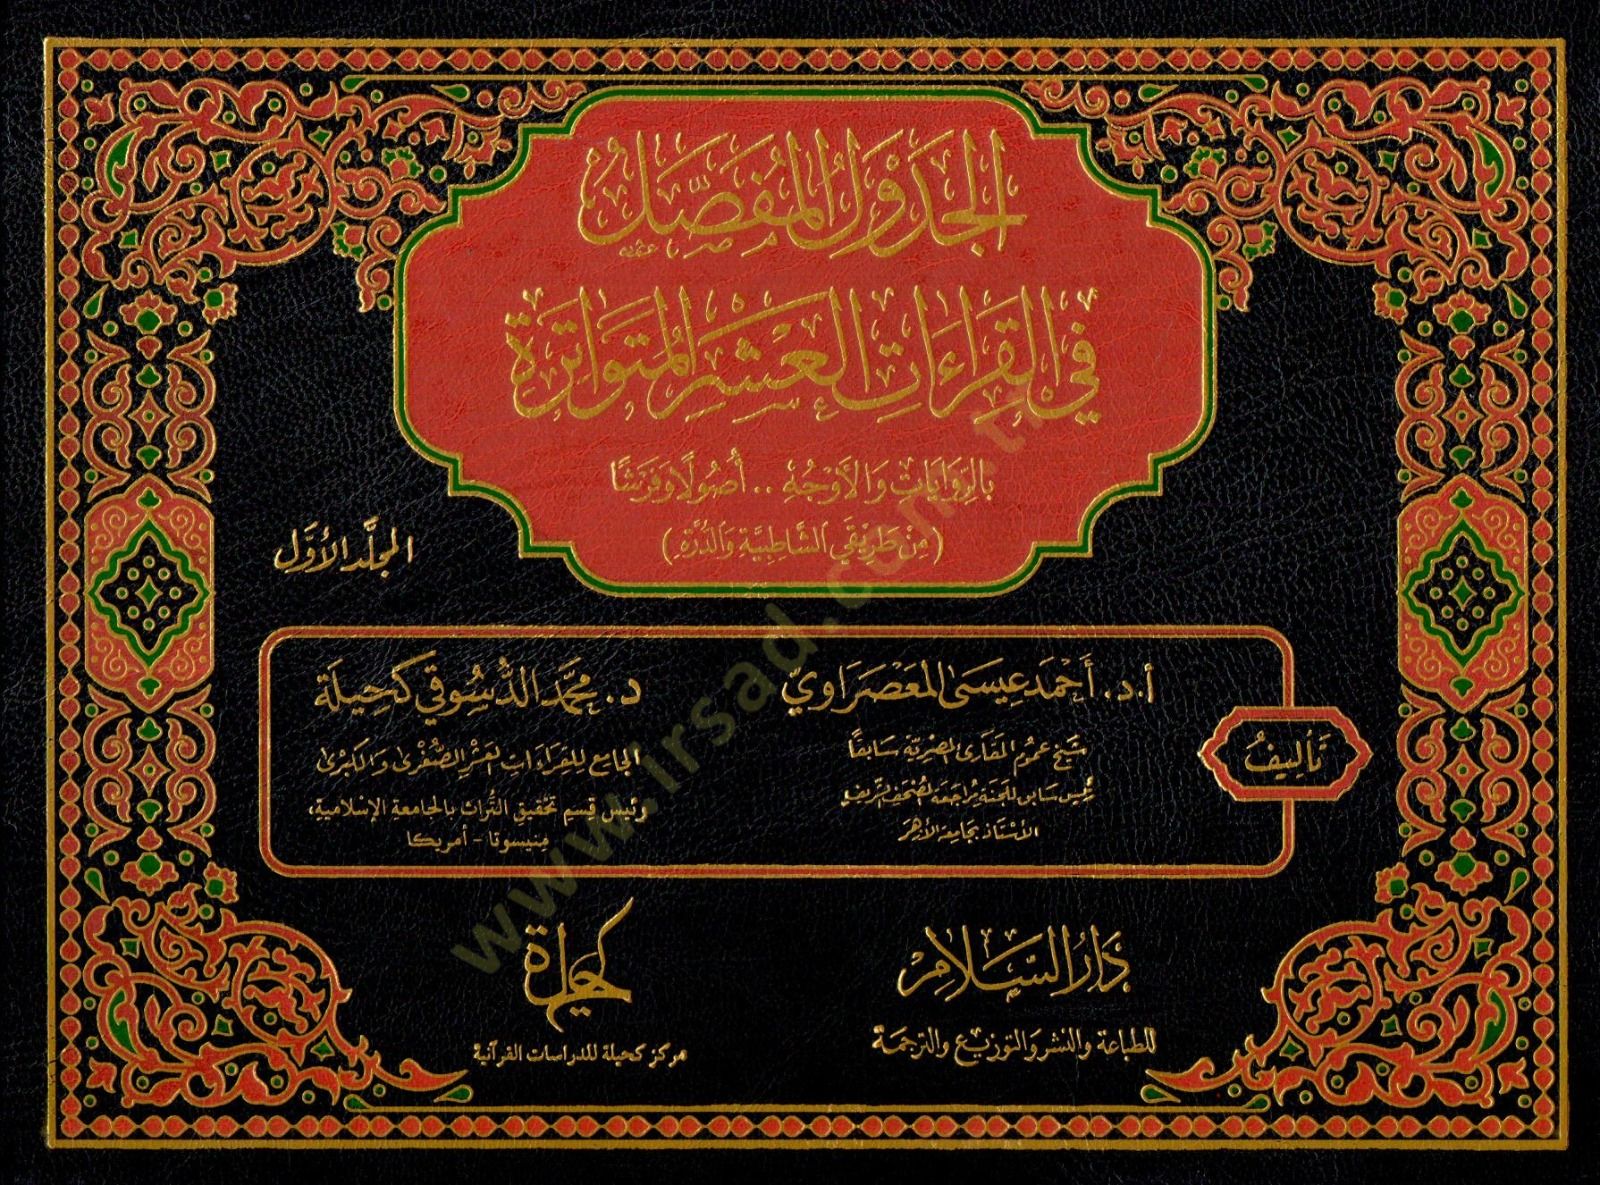 الجَدْوَلُ المُفَصَّلُ
في القِرَاءَاتِ العَشْرِ المُتَوَاتِرَةِ
بالرِّوَايَاتِ وَالأَوْجُهِ .. أُصُولًا وَفَرْشًا
(مِنْ طَرِيقَيِ الشَّاطِبِيَّةِ وَالدُّرَّةِ)
المجلَّد الأوَّل
تأليفُ
أ.د. أَحْمَد عِيسَى المَعْصَرَاوِيّ
شَيْخُ عُمُومِ المَقَارِئِ المِصْرِيَّةِ سَابِقًا
رئيس سابق للجنة مراجعة المصحف الشريف
الأُسْتَاذ بجَامِعَة الأَزْهَر
د. مُحَمَّد الدُّسُوقِي كَحِيلَة
الجَامِع لِلقِرَاءَاتِ العَشْرِ الصُّغْرَى وَالكُبْرَى
ورئيس قِسم تحقيق التُّراث بالجامعة الإسلامية،
مِنِيسوتا - أمريكا
دَارُ السَّلَامِ
للطباعة والنشر والتوزيع والترجمة
كحيلة
مركز كحيلة للدراسات القرآنية
www.irsad.com.tr